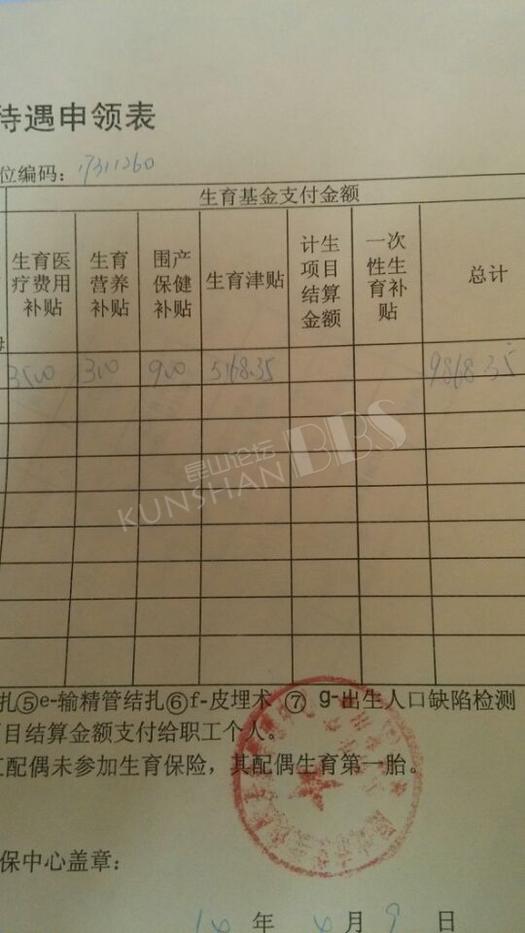 待遇申领表
位编码：17311260
生育基金支付金额
生育医疗费用补贴
生育营养补贴
围产保健补贴
生育津贴
计生项目结算金额
一次性生育补贴
总计
3500 300 900 5168.35 9868.35
昆山论坛
KUNSHAN BBS
扎⑤e-输精管结扎⑥f-皮埋术 ⑦ g-出生人口缺陷检测
目结算金额支付给职工个人。
配偶未参加生育保险，其配偶生育第一胎。
保中心盖章：
14 年 4 月 9 日